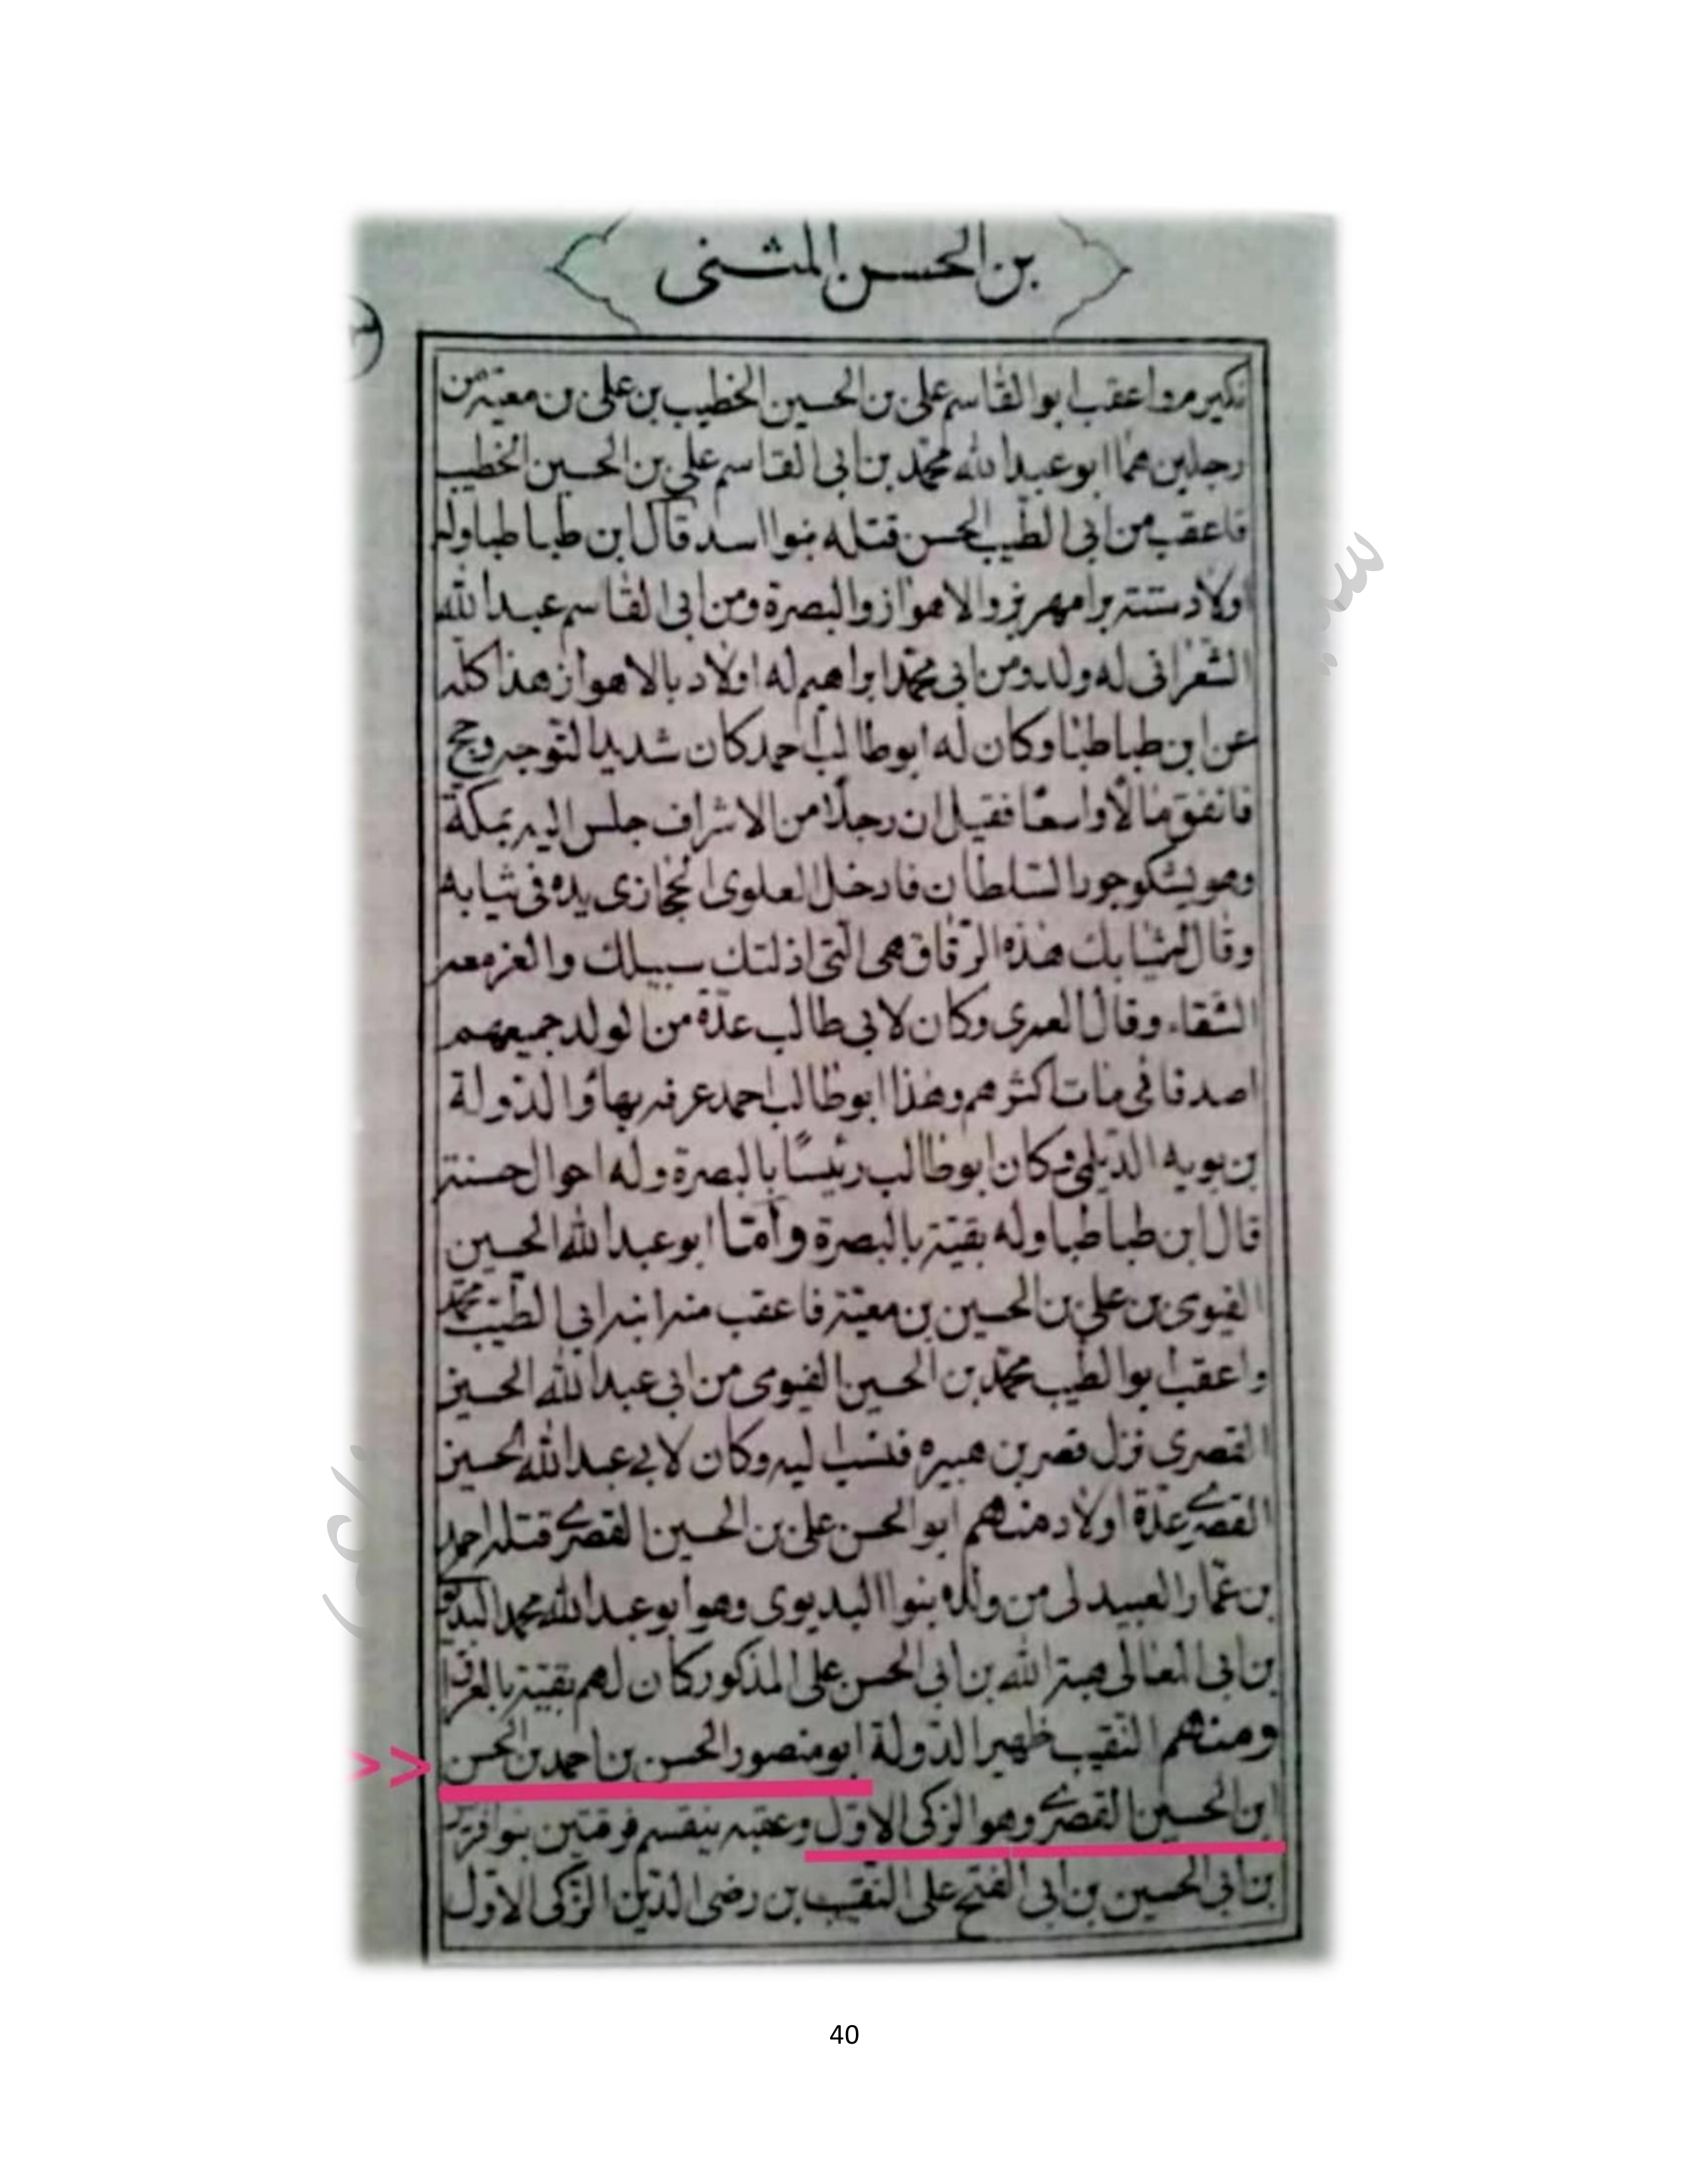 بن الحسن المثنى
نكيرم واعقب ابو القاسم على بن الحسين الخطيب بن على بن معية من
رجلين هما ابو عبد الله محمد بن ابى القاسم على بن الحسين الخطيب
فاعقب من ابى الطيب الحسن قتله بنوا اسد قال ابن طباطبا وله
اولاد ستتر برامهرمز والاهواز والبصرة ومن ابى القاسم عبد الله
الشعرانى له ولد ومن ابى محمد ابراهيم له اولاد بالاهواز هذا كله
عن ابن طباطبا وكان له ابو طالب احمد كان شديد التوجه وحج
فانفق مالاً واسعاً فقيل ان رجلا من الاشراف جلس اليه بمكة
وهو يشكو جور السلطان فادخل العلوى الحجازى يده فى ثيابه
وقال لمشابك هذه الرقاق هى التى اذلتك سبيلك والعز معه
الشقاء وقال العمرى وكان لابى طالب عدة من الولد جميعهم
اصدقائى مات اكثرهم وهذا ابو طالب احمد عرفه بهاؤ الدولة
بن بويه الديلمى وكان ابو طالب رئيساً بالبصرة وله احوال حسنة
قال ابن طباطبا وله بقية بالبصرة واما ابو عبد الله الحسين
الفيومى بن على بن الحسين بن معية فاعقب منه ابنه ابى الطيب محمد
واعقب ابو الطيب محمد بن الحسين الفيومى من ابى عبد الله الحسين
القصرى نزل قصر بن هبيره فنسب اليه وكان لابى عبد الله الحسين
القصرى عدة اولاد منهم ابو الحسن على بن الحسين القصرى قتله احمد
بن عمار العبيدلى من ولده بنوا البديوى وهو ابو عبد الله محمد البديوى
بن ابى المعالى هبة الله بن ابى الحسن على المذكور كان لهم بقية بالعراق
ومنهم النقيب ظهير الدولة ابو منصور الحسن بن احمد بن الحسن
ابن الحسين القصرى وهو الزكى الاول وعقبه ينقسم فرقتين بنو
بن ابى الحسين بن ابى الفتح على النقيب بن رضى الدين الزكى الاول
40